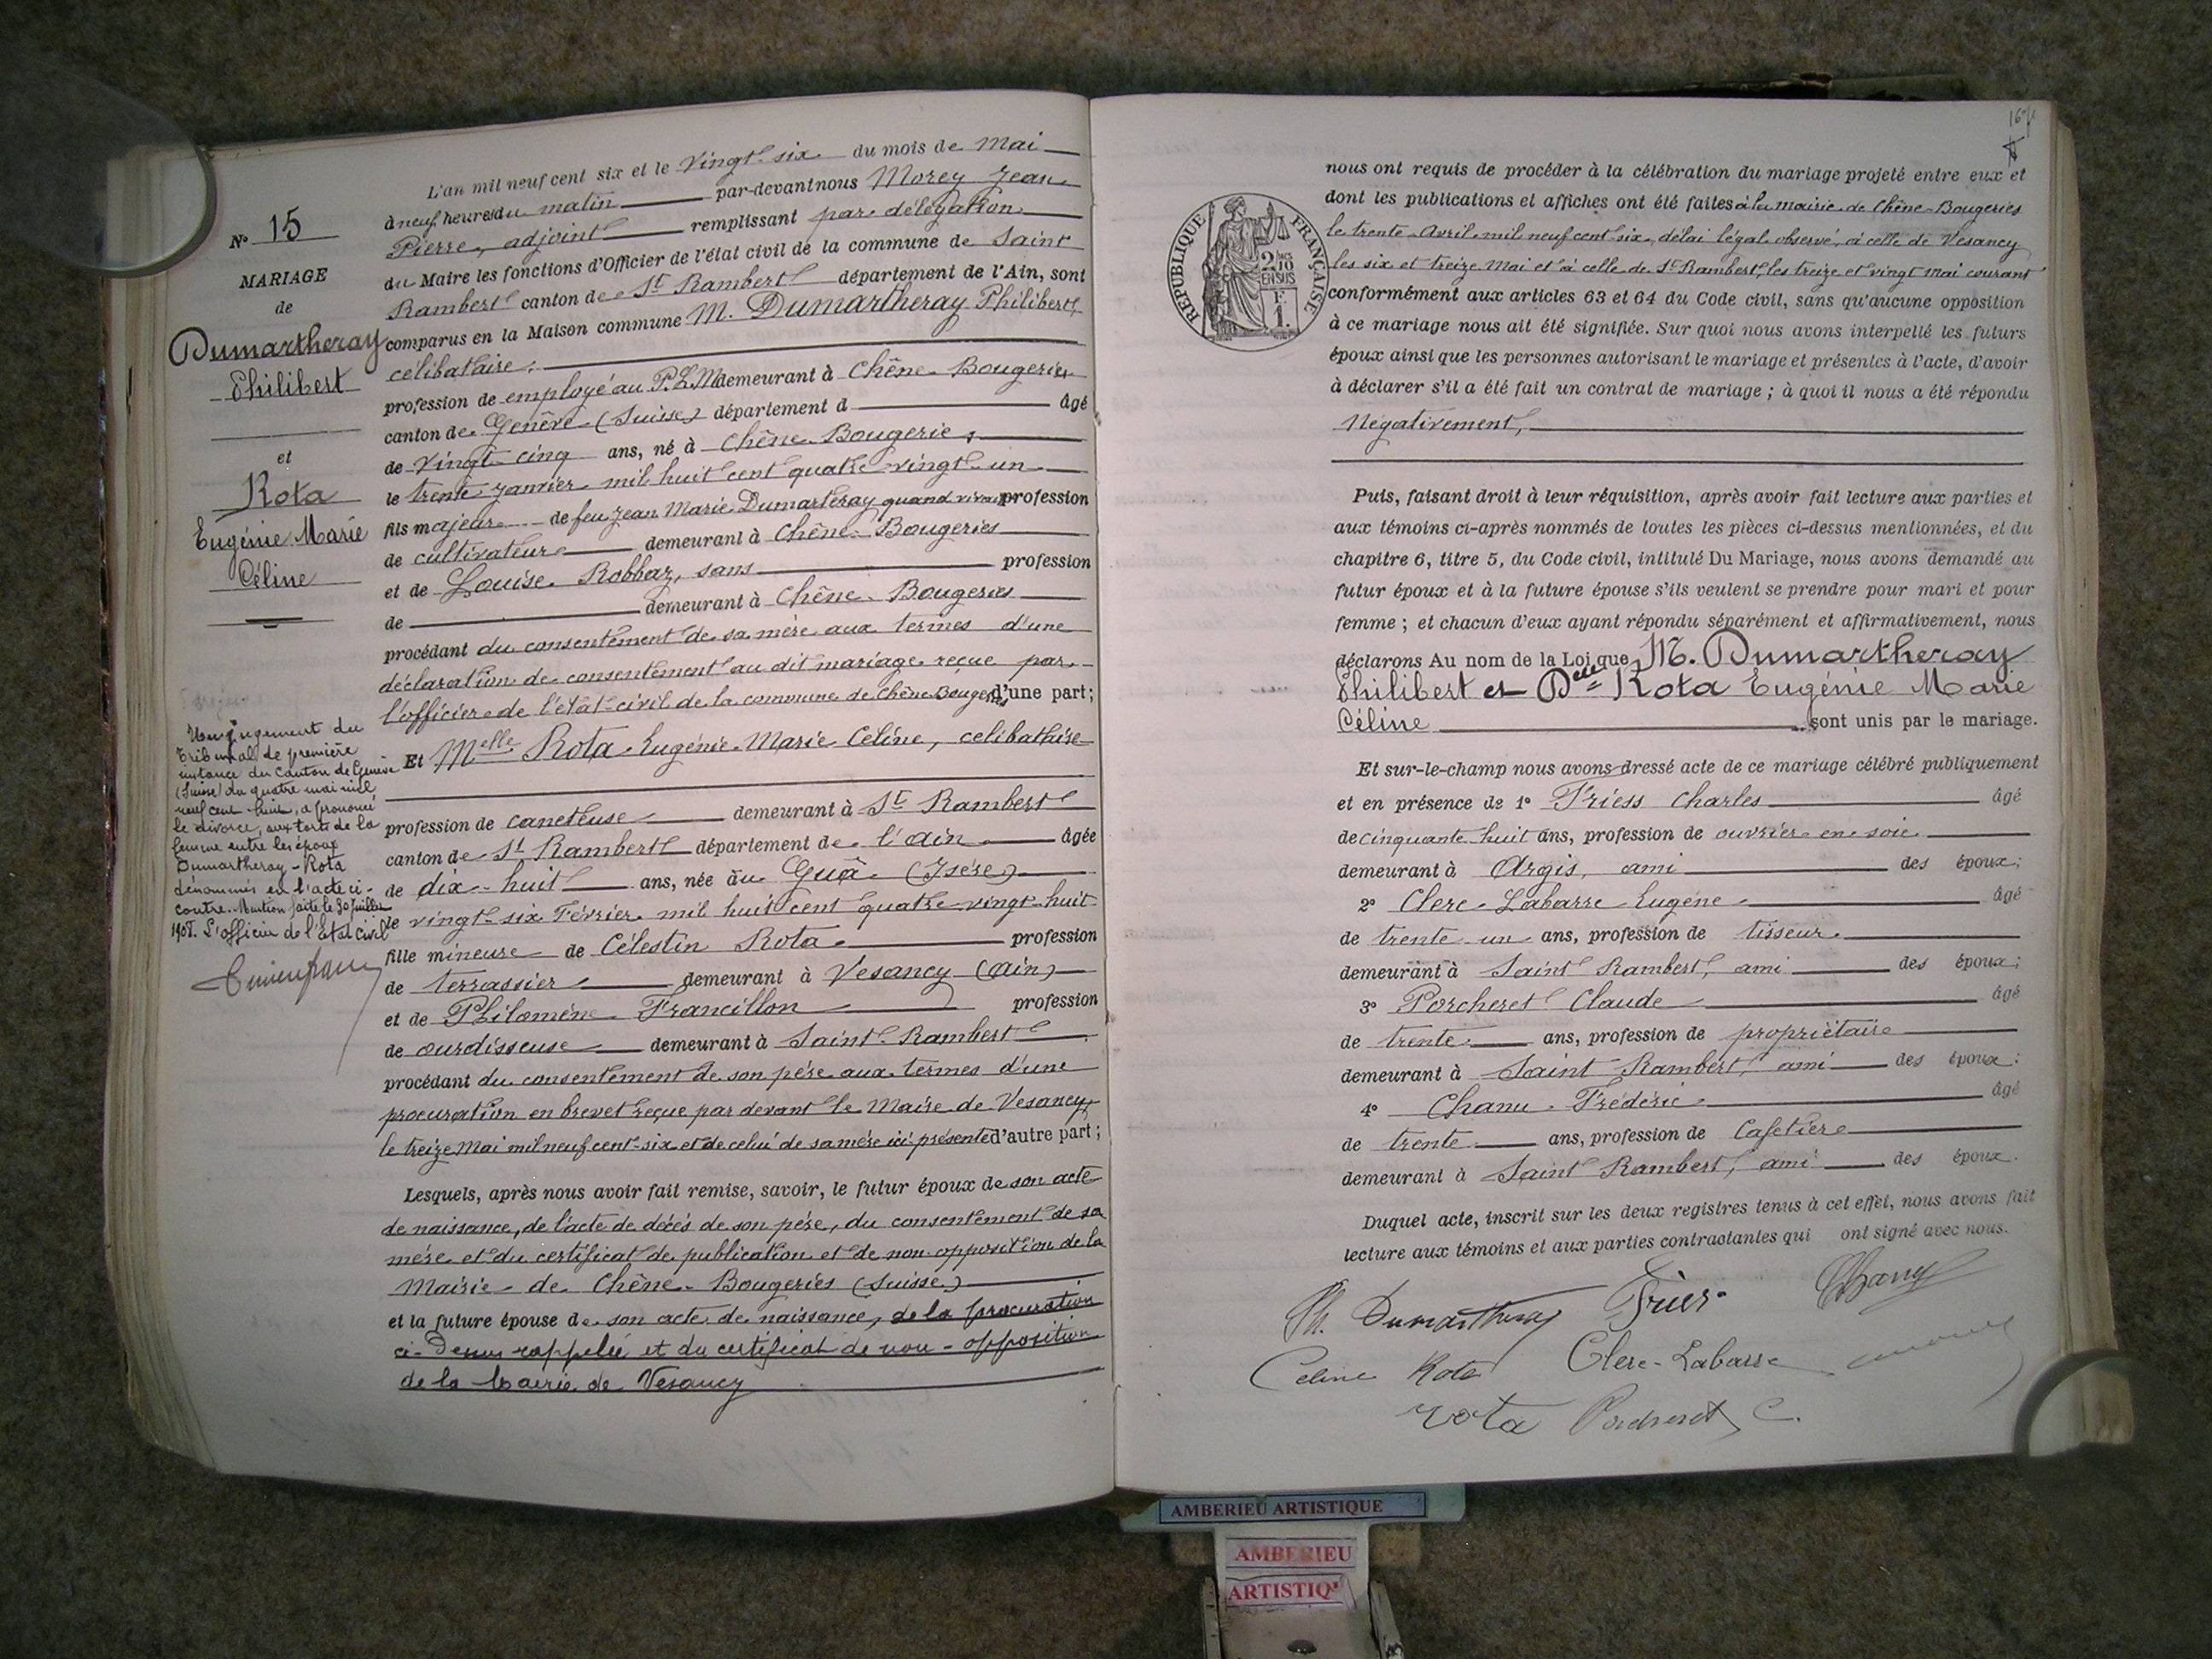 N° 15
MARIAGE
de
Dumartheray
Philibert
et
Rota
Eugénie Marie
Céline
Un jugement du
Tribunal de première
instance du Canton de Genève
(Suisse) du quatre mai mil
neuf cent huit, a prononcé
le divorce, aux torts de la
femme entre les époux
Dumartheray - Rota
dénommés en l'acte ci-
contre. Mention faite le 30 juillet
1908. L'officier de l'Etat civil
L'an mil neuf cent six et le vingt-six du mois de Mai
à neuf heures du matin par-devant nous Morey Jean
Pierre, adjoint remplissant par délégation
du Maire les fonctions d'Officier de l'état civil de la commune de Saint
Rambert canton de St Rambert département de l'Ain, sont
comparus en la Maison commune M. Dumartheray Philibert,
célibataire,
profession de employé au P.L.M demeurant à Chêne-Bougeries
canton de Genève (Suisse) département d âgé
de vingt-cinq ans, né à Chêne-Bougerie,
le trente janvier mil huit cent quatre vingt-un
fils majeur de feu Jean Marie Dumarteray quand vivait profession
de cultivateur demeurant à Chêne-Bougeries
et de Louise Robbaz, sans profession
de demeurant à Chêne-Bougeries
procédant du consentement de sa mère aux termes d'une
déclaration de consentement au dit mariage reçue par
l'officier de l'état-civil de la commune de Chêne-Bougeries d'une part;
Et Melle Rota Eugénie Marie Céline, célibathire
profession de caneteuse demeurant à St Rambert
canton de St Rambert département de l'ain âgée
de dix-huit ans, née au Guâ (Isére)
le vingt-six Février mil huit cent quatre-vingt-huit
fille mineure de Célestin Rota profession
de terrassier demeurant à Vesancy (ain)
et de Philomène Francillon profession
de ourdisseuse demeurant à Saint-Rambert
procédant du consentement de son pére aux termes d'une
procuration en brevet reçue par devant le Maire de Vesancy,
le treize Mai mil neuf cent-six et de celui de sa mére ici présente d'autre part;
Lesquels, après nous avoir fait remise, savoir, le futur époux de son acte
de naissance, de l'acte de décés de son pére, du consentement de sa
mére et du certificat de publication et de non-opposition de la
Mairie de Chêne-Bougeries (Suisse)
et la future épouse de son acte de naissance, de la procuration
ci-dessus rappelée et du certificat de non-opposition
de la Mairie de Vesancy
RÉPUBLIQUE FRANÇAISE
2/10 EN SUS
1 F.
nous ont requis de procéder à la célébration du mariage projeté entre eux et
dont les publications et affiches ont été faites à la mairie de Chêne-Bougeries
le trente Avril mil neuf cent-six, délai légal observé, à celle de Vesancy
les six et treize Mai et à celle de St Rambert, les treize et vingt mai courant
conformément aux articles 63 et 64 du Code civil, sans qu'aucune opposition
à ce mariage nous ait été signifiée. Sur quoi nous avons interpellé les futurs
époux ainsi que les personnes autorisant le mariage et présentes à l'acte, d'avoir
à déclarer s'il a été fait un contrat de mariage; à quoi il nous a été répondu
Négativement,
Puis, faisant droit à leur réquisition, après avoir fait lecture aux parties et
aux témoins ci-après nommés de toutes les pièces ci-dessus mentionnées, et du
chapitre 6, titre 5, du Code civil, intitulé Du Mariage, nous avons demandé au
futur époux et à la future épouse s'ils veulent se prendre pour mari et pour
femme; et chacun d'eux ayant répondu séparément et affirmativement, nous
déclarons Au nom de la Loi que M. Dumartheray
Philibert et Delle Rota Eugénie Marie
Céline sont unis par le mariage.
Et sur-le-champ nous avons dressé acte de ce mariage célébré publiquement
et en présence de 1° Friess Charles âgé
de cinquante huit ans, profession de ouvrier en soie
demeurant à Argis, ami des époux;
2° Clerc-Labarre Eugéne âgé
de trente un ans, profession de tisseur
demeurant à Saint Rambert, ami des époux;
3° Porcheret Claude âgé
de trente ans, profession de propriétaire
demeurant à Saint-Rambert, ami des époux;
4° Chanu Frédéric âgé
de trente ans, profession de Cafetier
demeurant à Saint Rambert, ami des époux.
Duquel acte, inscrit sur les deux registres tenus à cet effet, nous avons fait
lecture aux témoins et aux parties contractantes qui ont signé avec nous.
Ph. Dumartheray
Celine Rota Clerc-Labarre
Rota Porcheret C.
AMBERIEU ARTISTIQUE
AMBERIEU
ARTISTIQ